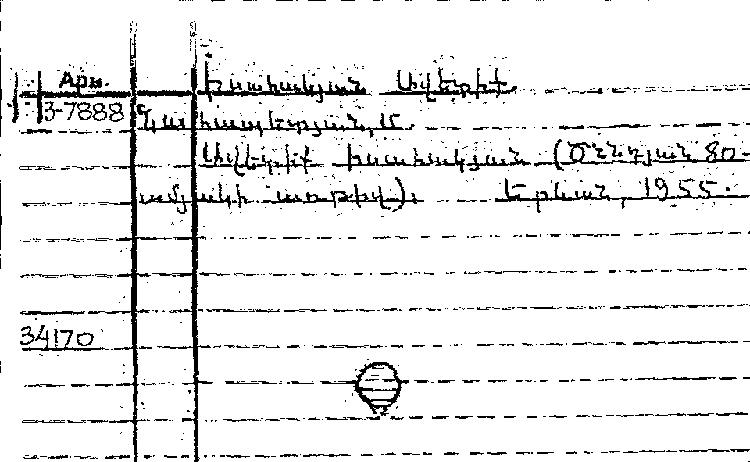 Арм. Իսահակյան Ավետիք.
3-7888
Ավետիք Իսահակյան (Ծննդյան 80-
ամյակի առթիվ): Երևան, 1955.
34170